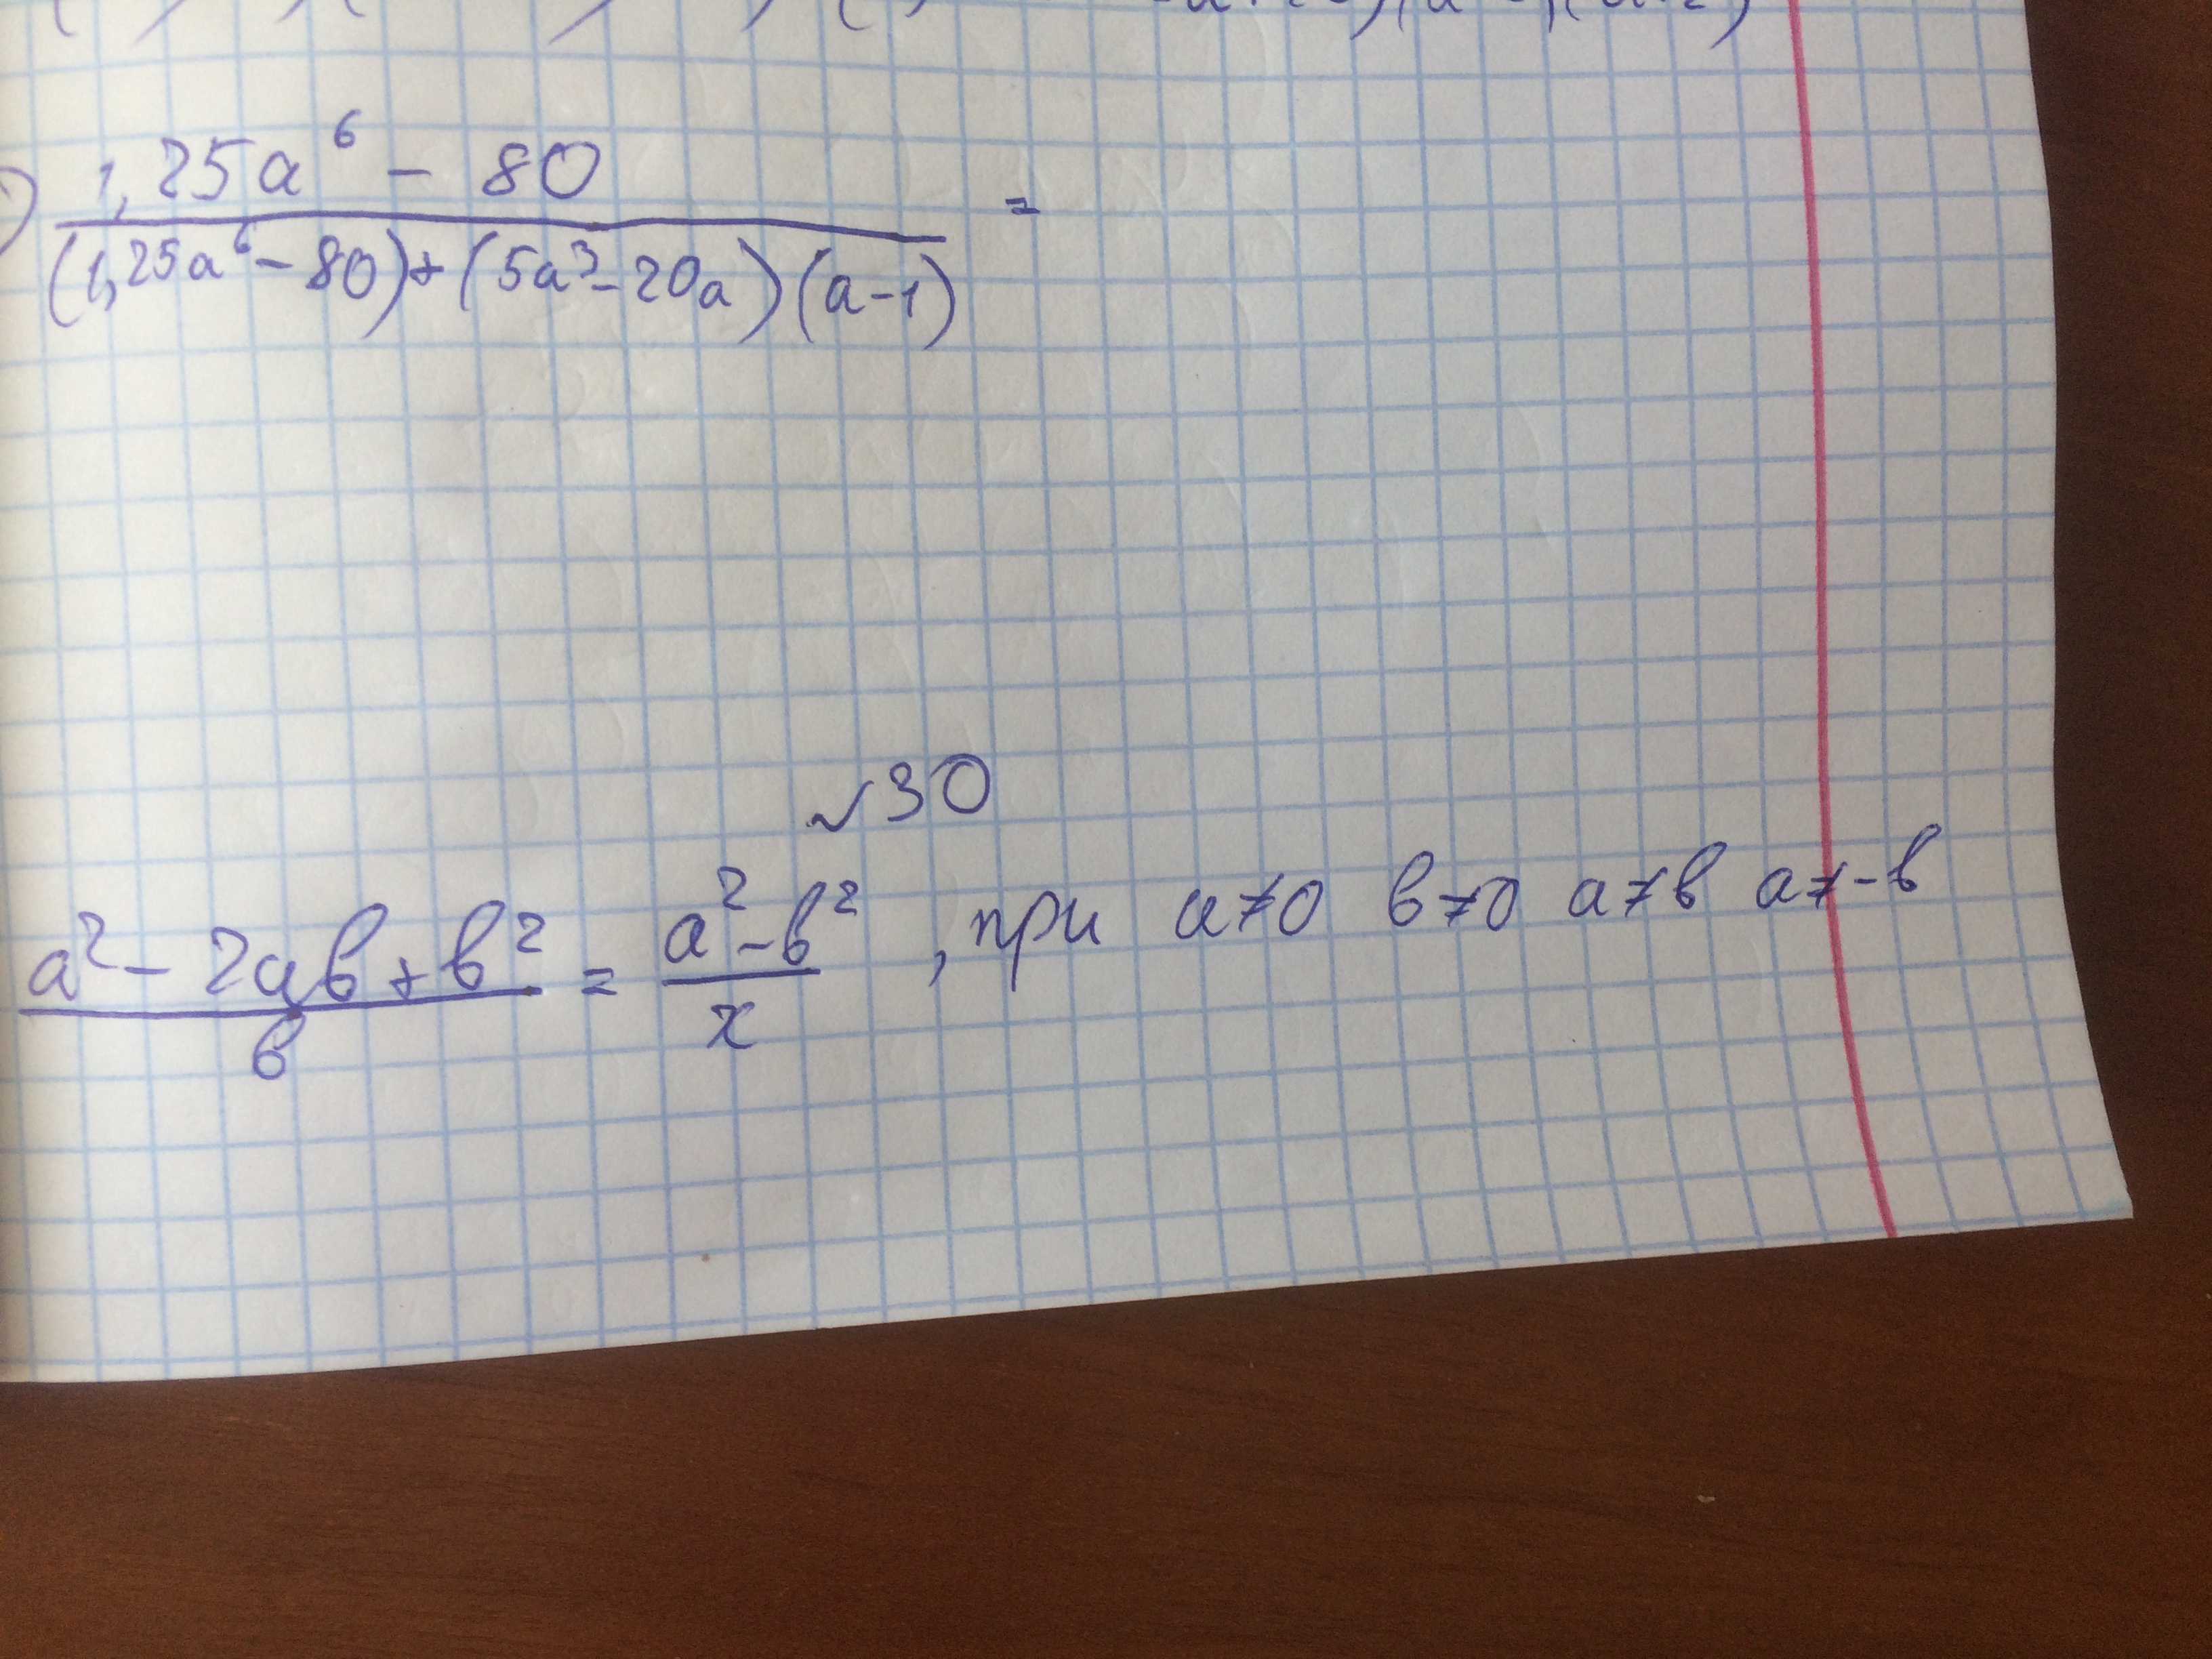 1,25a⁶ - 80
(1,25a⁶ - 80) + (5a³ - 20a)(a - 1) =
√30
a² - 2ab + b² = a² - b² , при a≠0 b≠0 a≠b a≠-b
b x